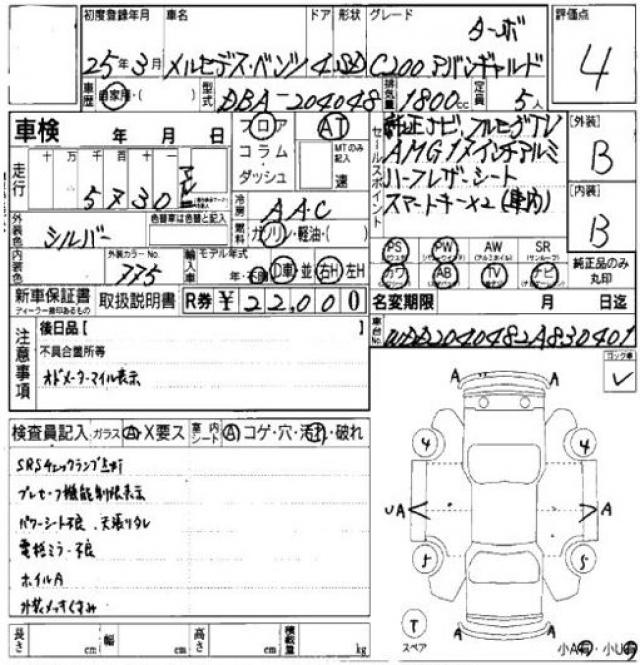 初度登録年月 車名 ドア 形状 グレード 評価点
ターボ
25年3月 メルセデス・ベンツ 4 SD C200 アバンギャルド 4
車歴 自家用・( ) 型式 DBA-204048 排気量 1800cc 定員 5人
車検 年 月 日
フロア AT
コラム MTのみ記入
ダッシュ 速
セールスポイント
純正ナビ フルセグTV
AMG 17インチアルミ
ハーフレザーシート
スマートキー×2(車内)
[外装] B
[内装] B
純正品のみ丸印
走行 十 万 千 百 十 一
5730
冷房 AAC
燃料 ガソリン・軽油・( )
外装色 シルバー 色替車は色替と記入
内装色 外装カラーNo. 775
輸入車 モデル年式 年・不明 D車・並 右H 左H
PS PW AW SR
(パワーウインドウ) (アルミホイル) (サンルーフ)
カワ AB TV ナビ
新車保証書 取扱説明書 R券 ¥22,000
ディーラー捺印あるもの
名変期限 月 日迄
車台No. WDD2040482A830401
注意事項
後日品[
不具合箇所等
オドメーターマイル表示
検査員記入 ガラス A・X要ス 室内シート A コゲ・穴・汚れ・破れ
SRSチェックランプ点灯
プレセーフ機能制限表示
パワーシート不良 天張りタレ
電格ミラー不良
ホイルA
外装メッキくすみ
長さ cm 幅 cm 高さ cm 積載量 kg
A A
4 4
UA A
5 5
A A
T
スペア
小A有・小U有